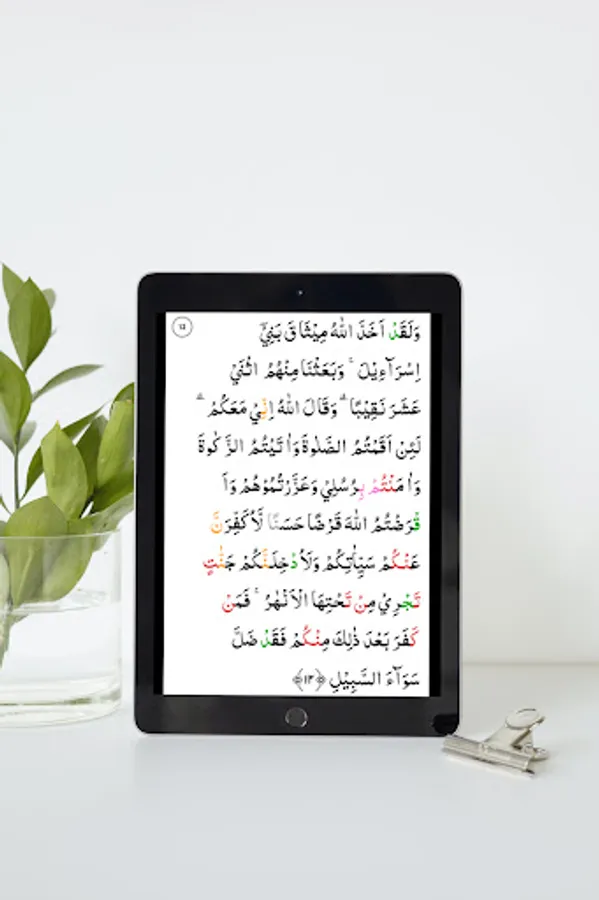 ١٢
وَلَقَدْ اَخَذَ اللّٰهُ مِيْثَاقَ بَنِيْٓ
اِسْرَآءِيْلَ ۚ وَبَعَثْنَا مِنْهُمُ اثْنَيْ
عَشَرَ نَقِيْبًا ؕ وَقَالَ اللّٰهُ اِنِّيْ مَعَكُمْ ؕ
لَئِنْ اَقَمْتُمُ الصَّلٰوةَ وَاٰتَيْتُمُ الزَّكٰوةَ
وَاٰمَنْتُمْ بِرُسُلِيْ وَعَزَّرْتُمُوْهُمْ وَاَ
قْرَضْتُمُ اللّٰهَ قَرْضًا حَسَنًا لَّاُكَفِّرَنَّ
عَنْكُمْ سَيِّاٰتِكُمْ وَلَاُدْخِلَنَّكُمْ جَنّٰتٍ
تَجْرِيْ مِنْ تَحْتِهَا الْاَنْهٰرُ ۚ فَمَنْ
كَفَرَ بَعْدَ ذٰلِكَ مِنْكُمْ فَقَدْ ضَلَّ
سَوَآءَ السَّبِيْلِ ﴿١٢﴾